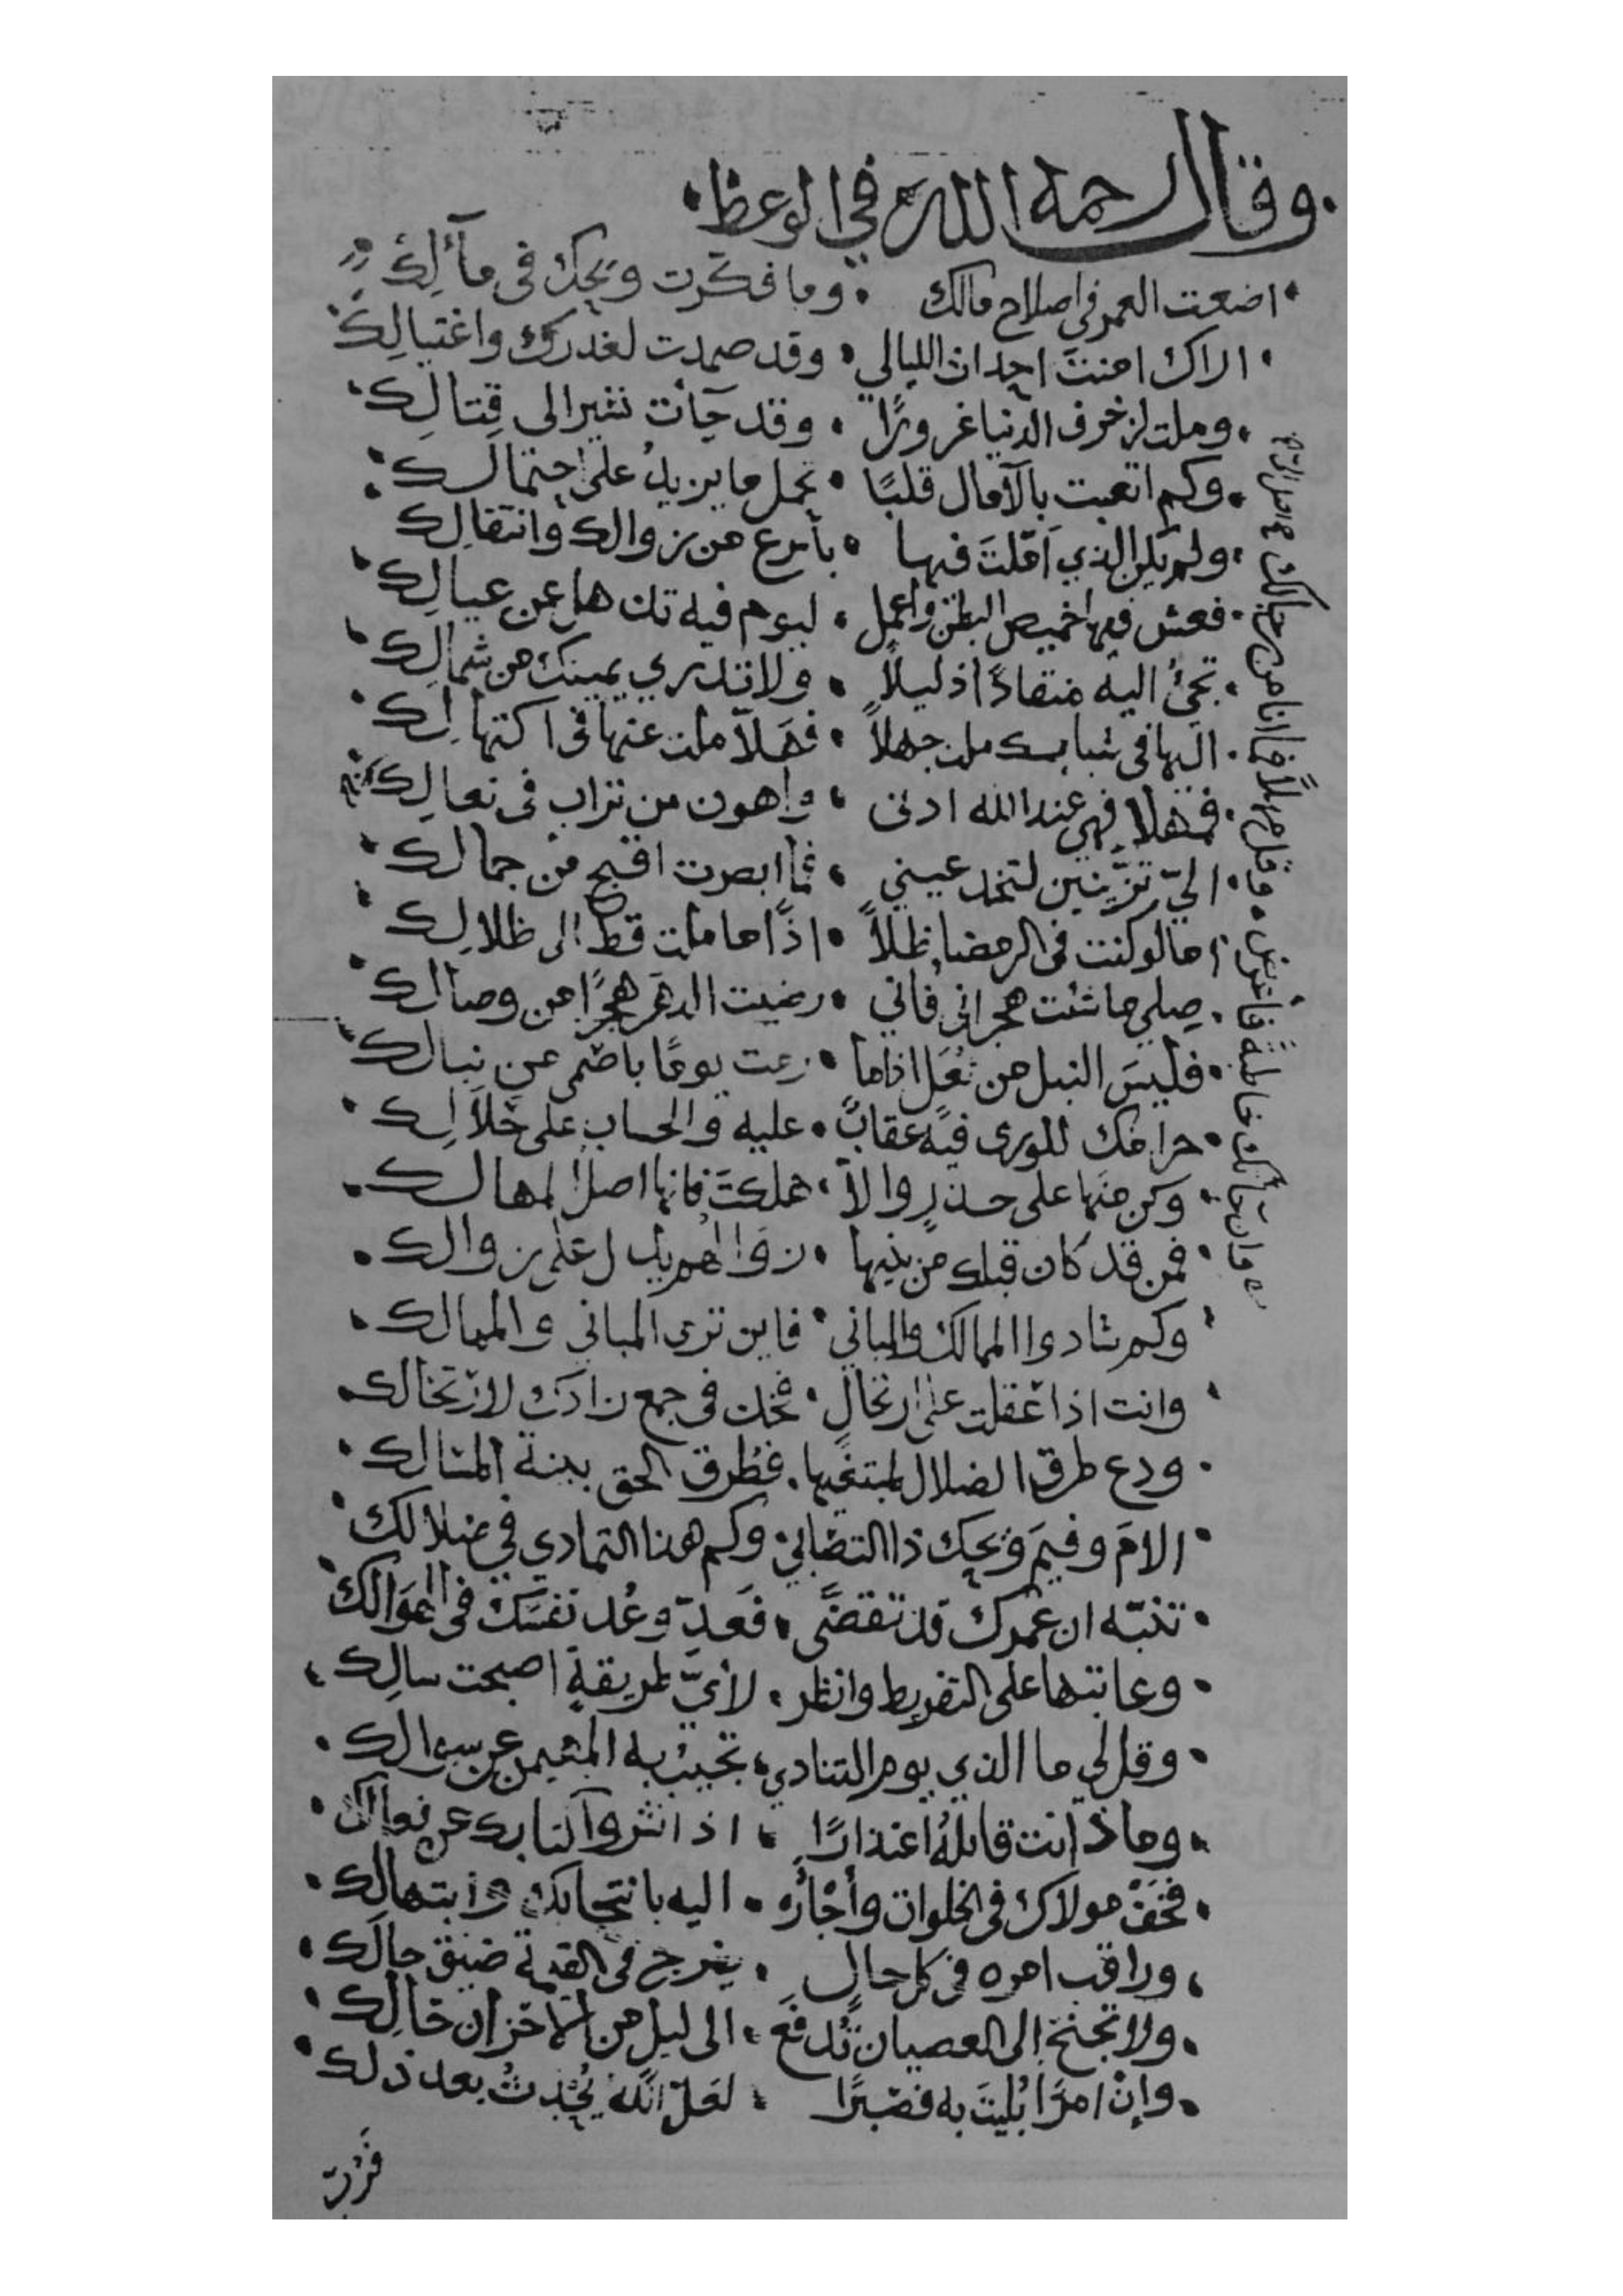 وقال رحمه الله في الوعظ
اضعت العمر في اصلاح مالك • وما فكّرت ويحك في مآلِك
اراك امنتَ احداث الليالي • وقد صمدت لغدرك واغتيالِك
وملت لزخرف الدنيا غرورًا • وقد جآت تشير الى قِتالِك
وكم اتعبت بالآمال قلبًا • تحمل ما يزيدُ على احتمالك
ولم يكن الذي اَمّلتَ فيها • بأسرع من زوالك وانتقالِك
فعش فيها خميص البطن واعمل • ليوم فيه تذهل عن عيالِك
تجئُ اليه منقادًا ذليلاً • ولا تدري يمينك من شمالِك
اليها في شبابك ملت جهلاً • فهَلاّ ملت عنها في اكتهالِك
فمهلا فهي عند الله ادنى • واهون من تراب في نعالِك
اليّ تزّينين لتخدعيني • فما ابصرت اقبح من جمالك
اما لو كنت في الرمضا ظلاً • اذًا ما ملت قط الى ظلالِك
صِلي ما شئت هجراني فاني • رضيت الدهَر هجرًا من وصالك
فليسَ النبل من ثُعَل اذا ما • رمت يومًا باصْمى من نِبالك
حرامك للورى فيه عقابٌ • عليه والحساب على حَلالِك
وكن منها على حذرٍ والاّ • هلكتَ فانها اصل المهالك
فمن قد كان قبلك من بنيها • زوالهم يدل على زوالك
وكم شادوا الممالك والمباني • فاين ترى المباني والممالك
وانت اذا عقلت على ارتحالٍ • فخذ في جمع زادك لارتحالك
ودع طرق الضلال لمبتغيها • فطُرق الحق بينة المسالك
الامَ وفيمَ ويحك ذا التصابي • وكم هذا التمادي في ضلالك
تنبّه ان عُمرك قد تقضَّى • فَعدِّ وعُد نفسَك في الهَوالك
وعاتبها على التفريط وانظر • لأيّ طريقةٍ اصبحت سالِك
وقل لي ما الذي يوم التنادي • تجيبُ به المهيمن عن سوالك
وماذا انت قايلهُ اعتذارًا • اذا نشروا كتابك عن فعالك
فخَفْ مولاك في الخلوات وأجْأَرْ • اليه بانتحابك وابتهالك
وراقب امره في كل حالٍ • يفرج في القيمة ضيق حالك
ولا تجنح الى العصيان تُدفَع • الى ليل من الاحزان حَالِك
وإنْ امرًا بُليتَ به فصَبرًا • لعَلّ الله يُحْدِثُ بعد ذلك